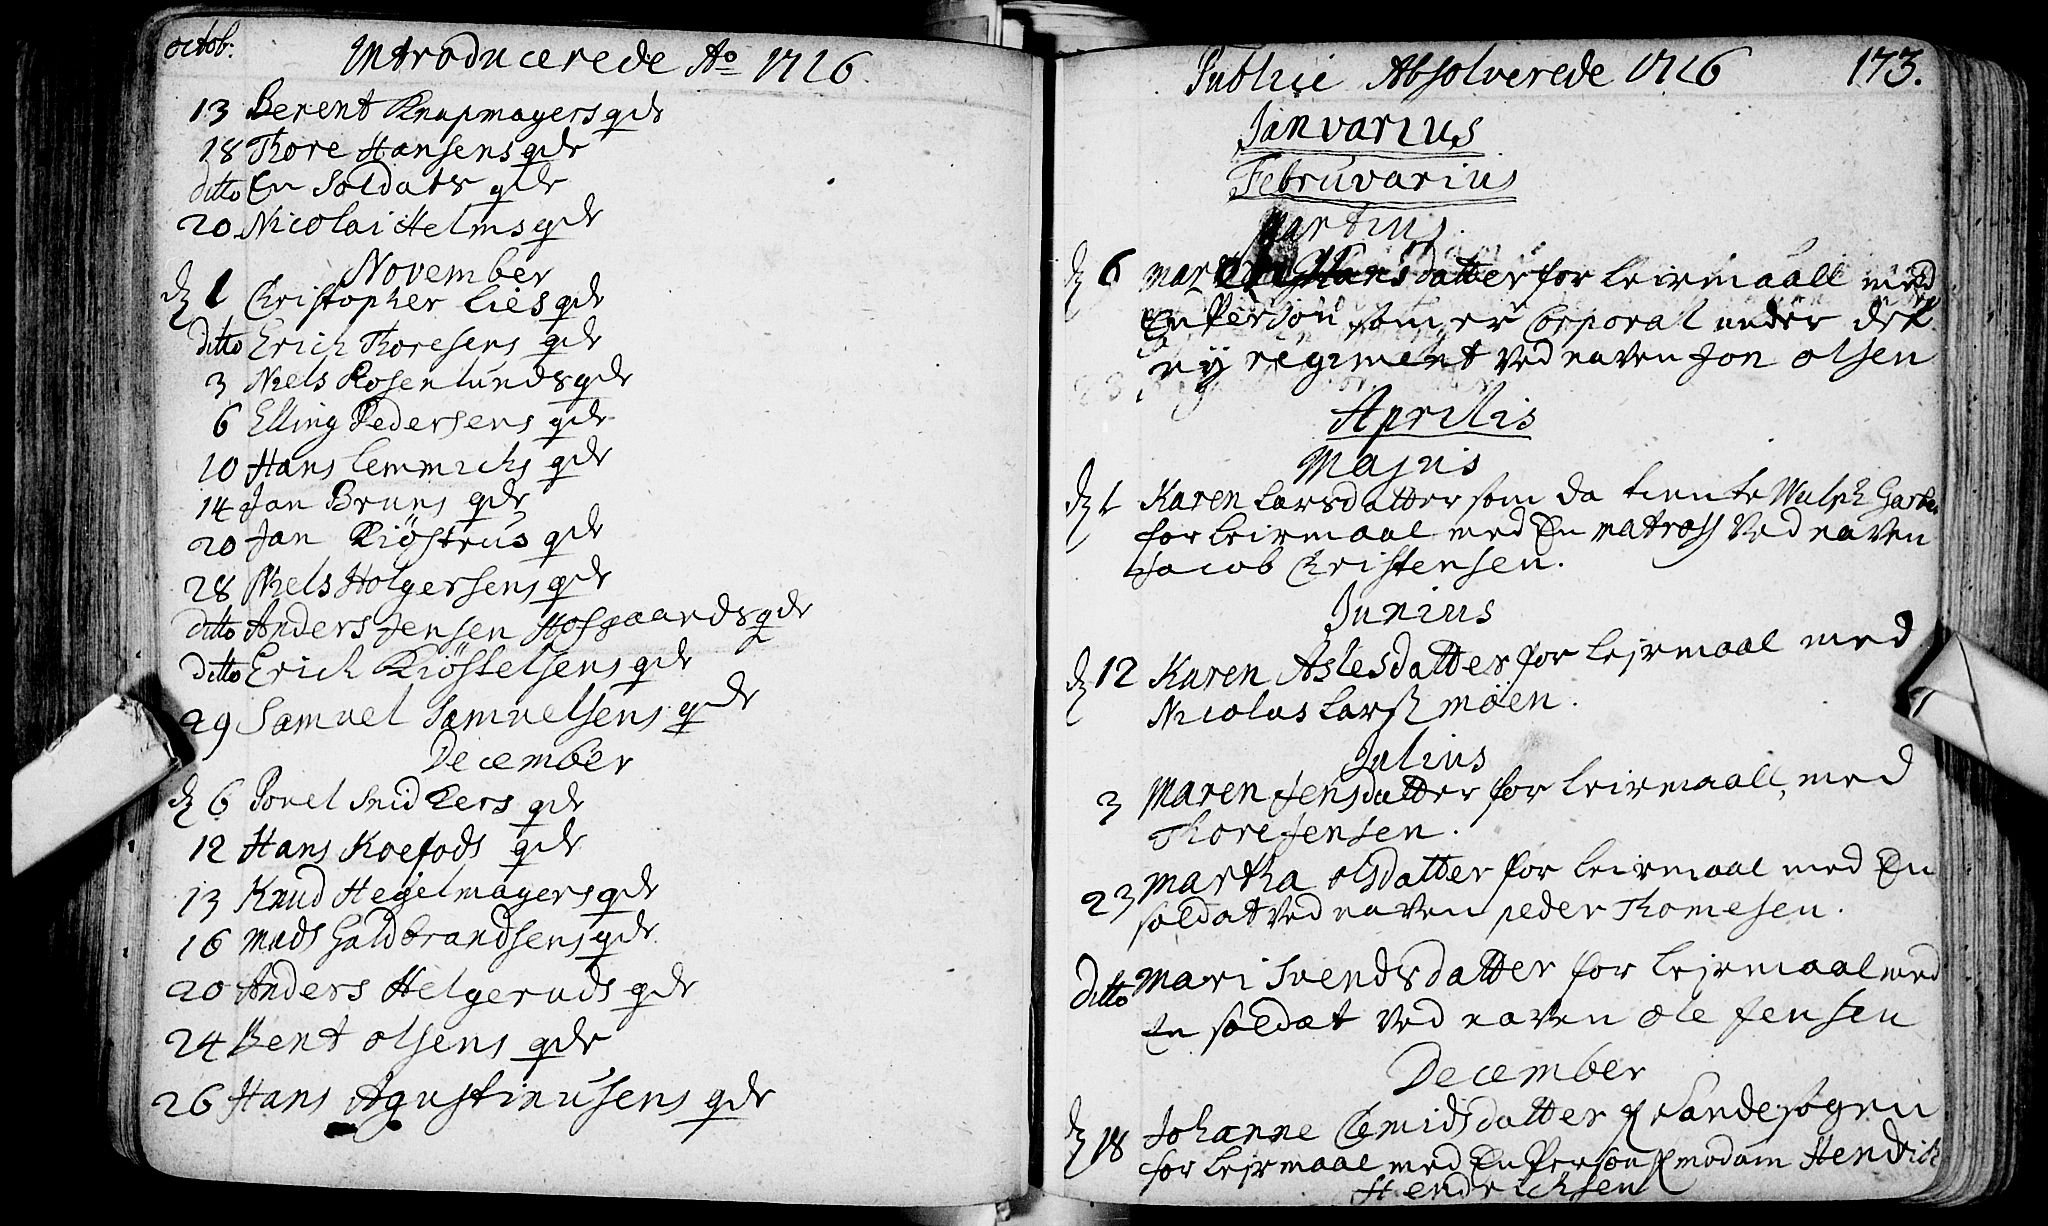 octob:
Introducerede Ao 1716.
13 Berent Knapmayers qdr
18 Thore Hansens qdr
ditto En Soldats qdr
20 Nicolai Helms qdr
November
d 1 Christopher Lies qdr
ditto Erich Thoresens qdr
3 Niels Rosenlunds qdr
6 Elling Pedersens qdr
10 Hans Lemmichs qdr
14 Jan Bruns qdr
20 Jan Kiösterus qdr
28 Niels Holgersens qdr
ditto Anders Jensen Hofgaards qdr
ditto Erich Kiöstelsens qdr
29 Samuel Samuelsens qdr
December
d 6 Povel Snidkers qdr
12 Hans Koefods qdr
13 Knud Hegelmayers qdr
16 Mads Galdbrandsens qdr
20 Anders Helgeruds qdr
24 Bent Olsens qdr
26 Hans Agustinusens qdr
Publice Absolverede 1716 173.
Janvarius
Februvarius
Martius.
d 6 Hansdatter for leirmaall med
En Person som er Corporal under det
ny regiment ved naven Jon Olsen
Aprilis
Majus
d 1 Karen Larsdatter som da tiente Wulph
for leirmaal med En matross ved naven
Jacob Christensen.
Junius
d 12 Karen Aslesdatter for lejrmaal med
Nicolas Larss möen.
Julius
3 Maren Jensdatter for leirmaall, med
Thore Jensen.
23 Martha Olsdatter for leirmaal med En
soldat ved naven peder Thomesen.
ditto Mari Svendsdatter for lejrmaal med
En soldat ved naven Ole Jensen
December
d 18 Johanne Gmidsdatter Sandesogen
for lejrmaal med En Person modum Hendrich
Hendrichsen